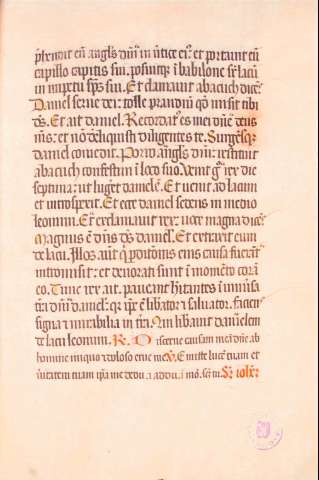 p̄hendit eū angl's dn̄i ī ūtice ei': et portauit eū
capillo capitis sui. posuitq; ī babilone sr̄ lacū
in impetu sp̄s sui. Et clamauit abacuch dicē'
Daniel serue dei: tolle prandiū qd' misit tibi
ds̄. Et ait daniel. Recordat' es mei dn̄e deus
m̄s: et nō dereliquisti diligentes te. Surgēsq;
daniel comedit. Porro angl's dn̄i restituit
abacuch confestim ī loco suo. Venit g° rex die
septima: ut lugeret danielē. Et uenit ad lacum
et introspexit. Et ecce daniel sedens in medio
leonum. Et exclamauit rex: uoce magna dicēs
Magnus es dn̄e ds̄ daniel. Et extraxit eum
de lacu. Illos aut' q' perditionis eius causa fuerāt
intromisit: et deuorati sunt ī momēto corā
eo. Tunc rex ait. paueant hītantes ī uniūsa
t'ra dn̄m daniel: qr ip̄e ē libator et saluator. faciens
signa et mirabilia in t'ra. Qui libauit danielem
de lacu leonum. R. Discerne causam meā dn̄e. ab
homine iniquo et doloso eripe me. V. Emitte lucē tuam et
ueritatem tuam ipa me dedux. et addux. ī mō. sc̄m